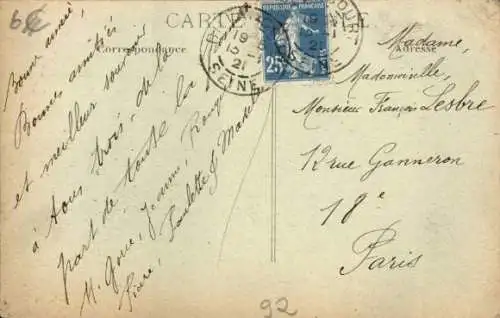 6€
CARTE
Correspondance
Adresse
RÉPUBLIQUE FRANÇAISE
25
19
15
21
SEINE
Bonne année,
Bonnes amitiés
et meilleur souvenir
à tous trois, de la
part de toute la
M.
Pierre, Paulette & Made
Madame,
Mademoiselle,
Monsieur François Lesbre
12 rue Ganneron
18e
Paris
92